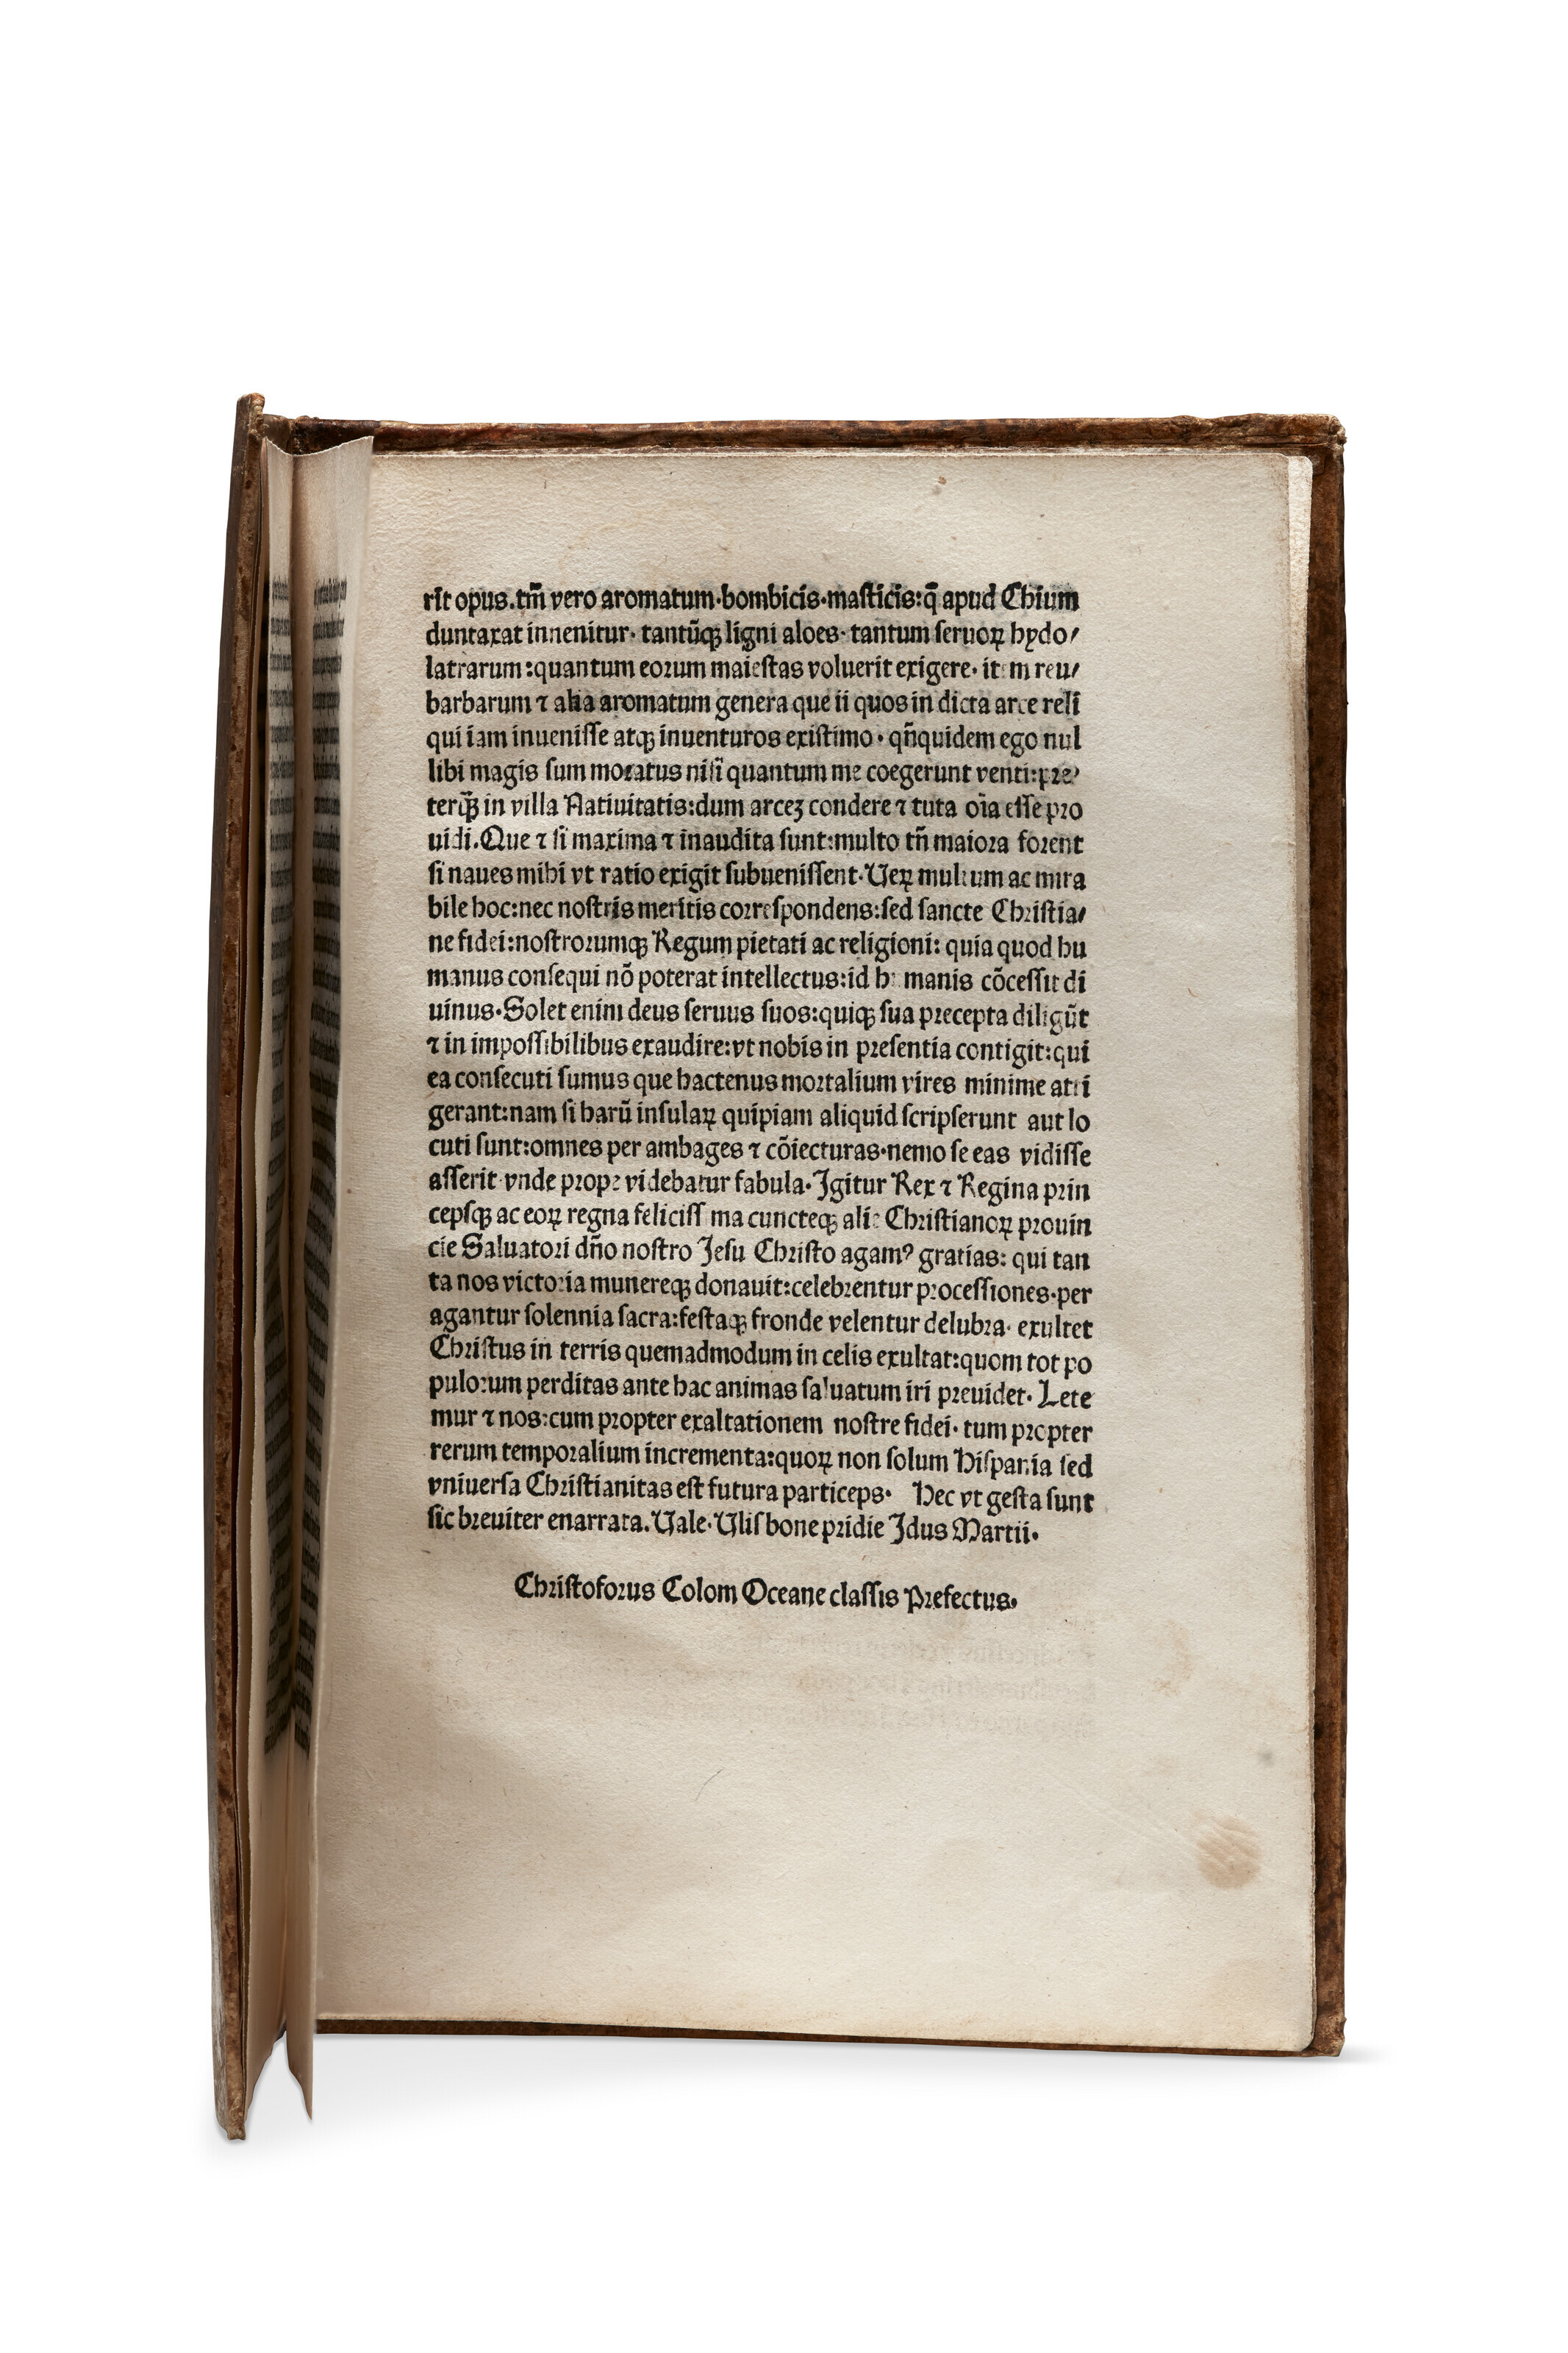 rit opus. tm̄ vero aromatum·bombicis·masticis:q̄ apud Chium
duntaxat innenitur· tantūqꝫ ligni aloes· tantum seruoꝝ hydo/
latrarum:quantum eorum maiestas voluerit exigere· item reu/
barbarum ⁊ alia aromatum genera que ii quos in dicta arce reli
qui iam inuenisse atqꝫ inuenturos existimo· qn̄quidem ego nul
libi magis sum moratus nisi quantum me coegerunt venti:pre/
terqꝫ̄ in villa Natiuitatis:dum arceꝫ condere ⁊ tuta oīa esse pro
uidi.Que ⁊ si maxima ⁊ inaudita sunt:multo tn̄ maiora forent
si naues mihi vt ratio exigit subuenissent·Ueꝝ multum ac mira
bile hoc:nec nostris meritis correspondens:sed sancte Christia/
ne fidei:nostrorumqꝫ Regum pietati ac religioni: quia quod hu
manus consequi nō poterat intellectus:id humanis cōcessit di
uinus·Solet enim deus seruus suos:quiqꝫ sua precepta diligūt
⁊ in impossibilibus exaudire:vt nobis in presentia contigit:qui
ea consecuti sumus que hactenus mortalium vires minime atti
gerant:nam si harū insulaꝝ quipiam aliquid scripserunt aut lo
cuti sunt:omnes per ambages ⁊ cōiecturas·nemo se eas vidisse
asserit vnde prope videbatur fabula·Igitur Rex ⁊ Regina prin
cepsqꝫ ac eoꝝ regna felicissima cuncteqꝫ alie Christianoꝝ prouin
cie Saluatori dn̄o nostro Jesu Christo agamꝰ gratias: qui tan
ta nos victoria munereqꝫ donauit:celebrentur processiones·per
agantur solennia sacra:festaqꝫ fronde velentur delubra· exultet
Christus in terris quemadmodum in celis exultat:quom tot po
pulorum perditas ante hac animas saluatum iri preuidet· Lete
mur ⁊ nos:cum propter exaltationem nostre fidei· tum propter
rerum temporalium incrementa:quoꝝ non solum Hispania sed
vniuersa Christianitas est futura particeps· Hec vt gesta sunt
sic breuiter enarrata.Uale·Ulisbone pridie Idus Martii·
Christoforus Colom Oceane classis Prefectus·